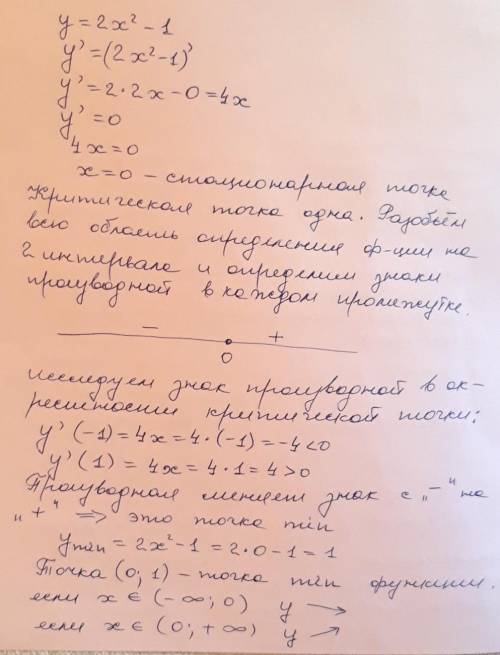 y = 2x² - 1
y' = (2x² - 1)'
y' = 2 * 2x - 0 = 4x
y' = 0
4x = 0
x = 0 - стационарная точка
Критическая точка одна. Разобьём
всю область определения ф-ции на
2 интервала и определим знаки
производной в каждом промежутке.
- +
0
Исследуем знак производной в ок-
рестности критической точки:
y'(-1) = 4x = 4 · (-1) = -4 < 0
y'(1) = 4x = 4 · 1 = 4 > 0
Производная меняет знак с „-" на
„+" => это точка min
ymin = 2x² - 1 = 2 · 0 - 1 = 1
Точка (0; 1) - точка min функции.
если x ∈ (-∞; 0) y →
если x ∈ (0; +∞) y ↗